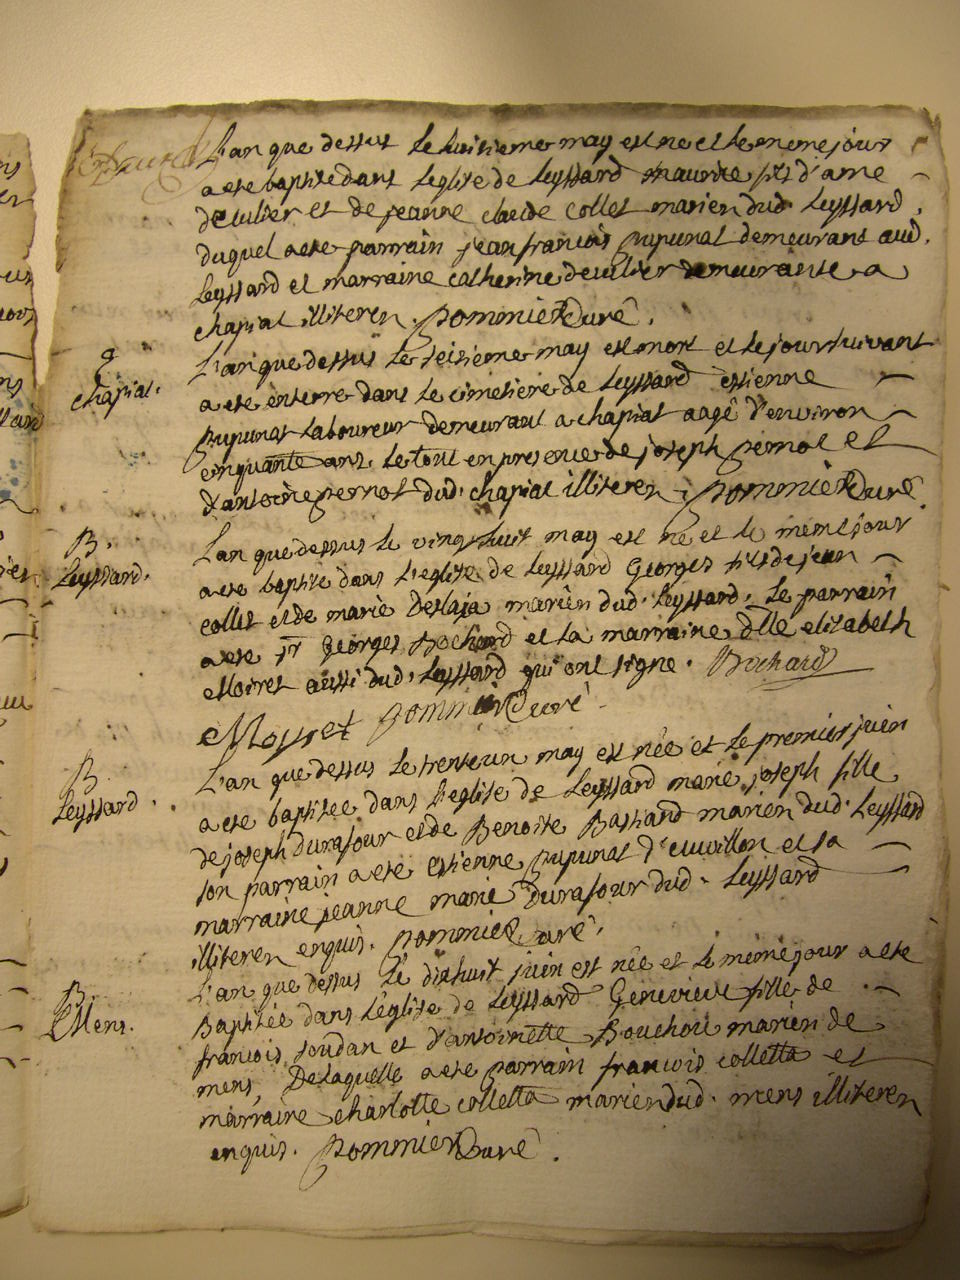 L'an que dessus le huitieme may est ne et le meme jour
a ete baptise dans l'eglise de Leyssard maurice fils d'ame
deculier et de jeanne claude collet mariez dud. Leyssard,
duquel a ete parrain jean francois pupunat demeurant aud.
Leyssard et marraine catherine deculier demeurante a
chapiat illiteres. pommier Curé.
chapiat.
L'an que dessus le seisieme may est mort et le jour suivant
a eté enterre dans le cimetiere de Leyssard estienne
pupunat laboureur demeurant a chapiat aagé d'environ
cinquante ans. le tout en presence de joseph pernot et
d'antoine pernot dud. chapiat illiteres. pommier Curé.
B.
Leyssard.
L'an que dessus le vingt huit may est né et le meme jour
a ete baptise dans l'eglise de Leyssard Georges fils de jean
collet et de marie mariez dud. Leyssard. Le parrain
a ete sr Georges Bochard et la marraine dlle elizabeth
Moiret aussi dud. Leyssard qui ont signe. Bochard
Moyret pommier Curé.
B
Leyssard.
L'an que dessus le trente un may est née et le premier juin
a ete baptisee dans l'eglise de Leyssard marie joseph fille
de joseph durafour et de Benoite Bastiand mariez dud. Leyssard
son parrain a eté estienne pupunat et sa
marraine jeanne marie durafour dud. Leyssard
illiteres enquis. pommier Curé.
B
Mens.
L'an que dessus le dixhuit juin est née et le meme jour a eté
Baptisée dans l'eglise de Leyssard Genevieve fille de
francois soudan et d'antoinette mariez de
mens, De laquelle a ete parrain francois colletta et
marraine charlotte colletta mariez dud. mens illiteres
enquis. pommier Curé.